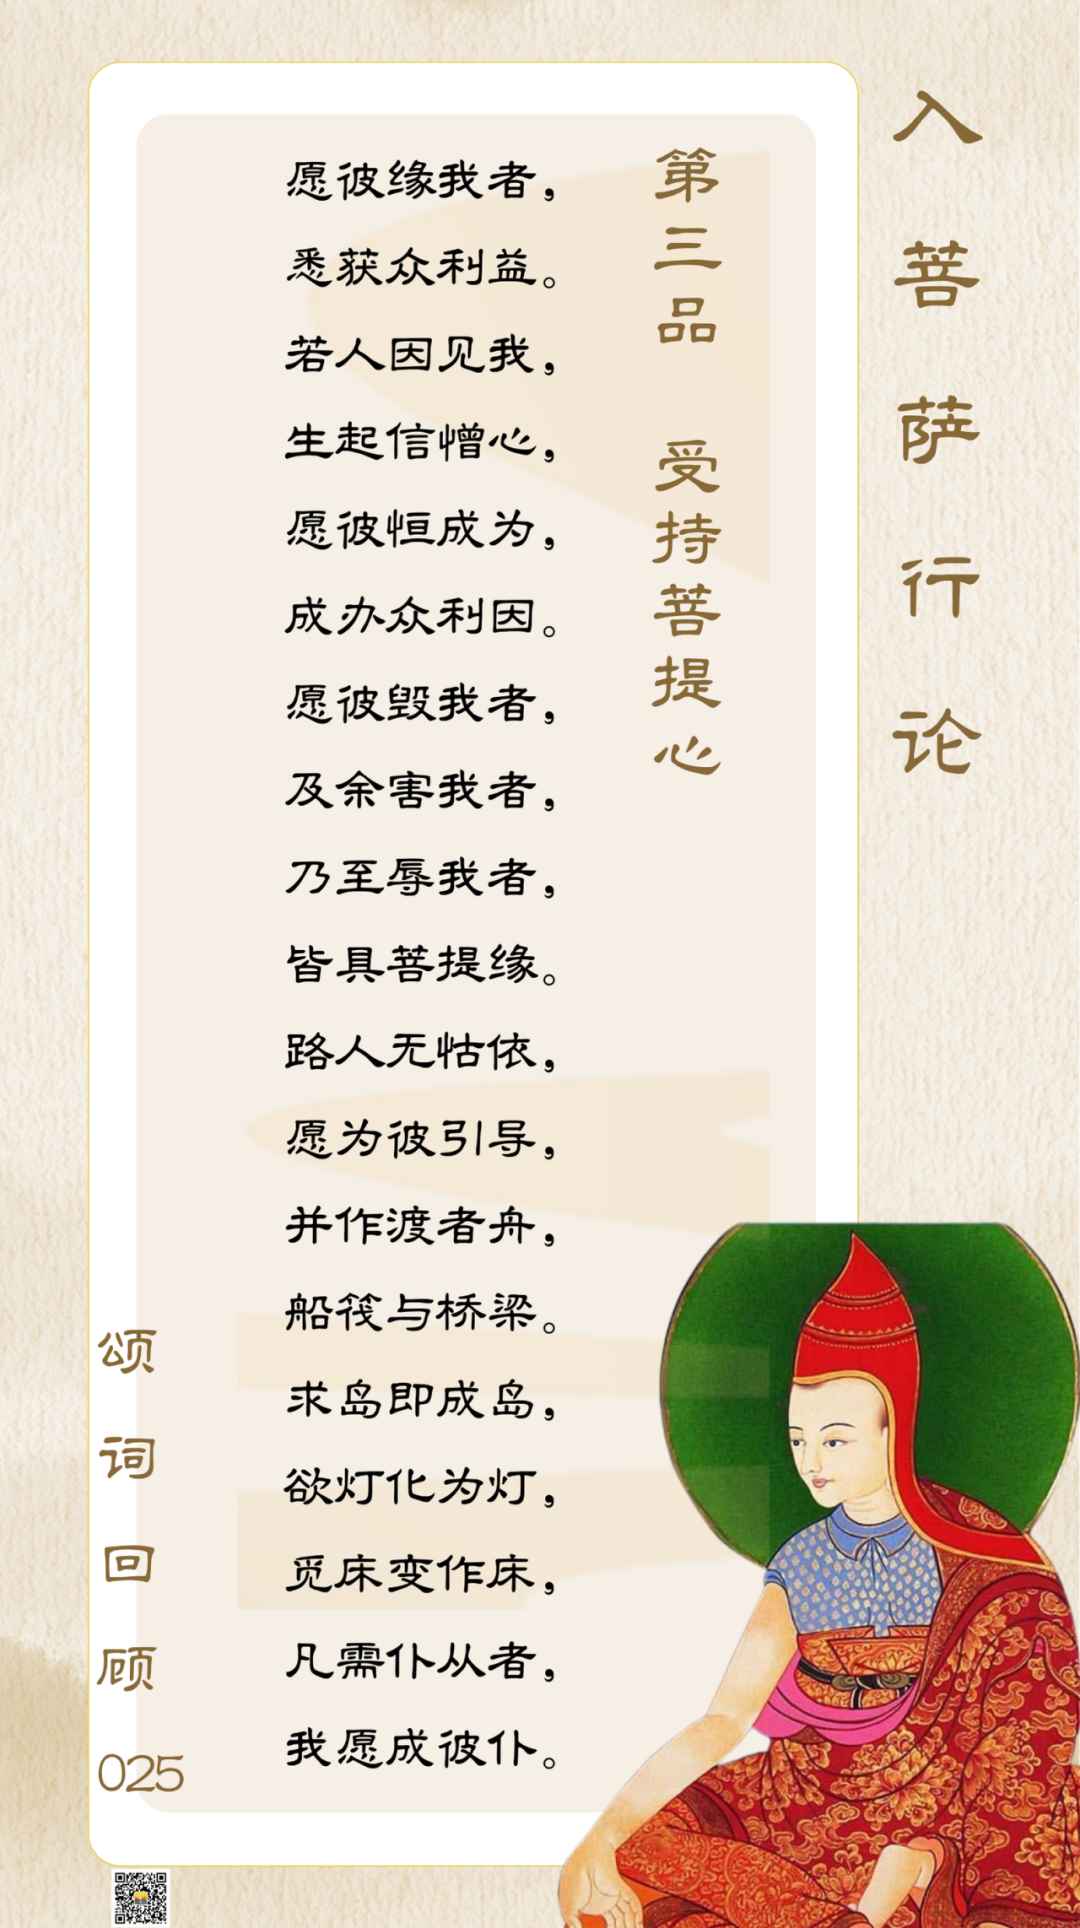 入菩萨行论
第三品 受持菩提心
愿彼缘我者，
悉获众利益。
若人因见我，
生起信憎心，
愿彼恒成为，
成办众利因。
愿彼毁我者，
及余害我者，
乃至辱我者，
皆具菩提缘。
路人无怙依，
愿为彼引导，
并作渡者舟，
船筏与桥梁。
求岛即成岛，
欲灯化为灯，
觅床变作床，
凡需仆从者，
我愿成彼仆。
颂词回顾
025